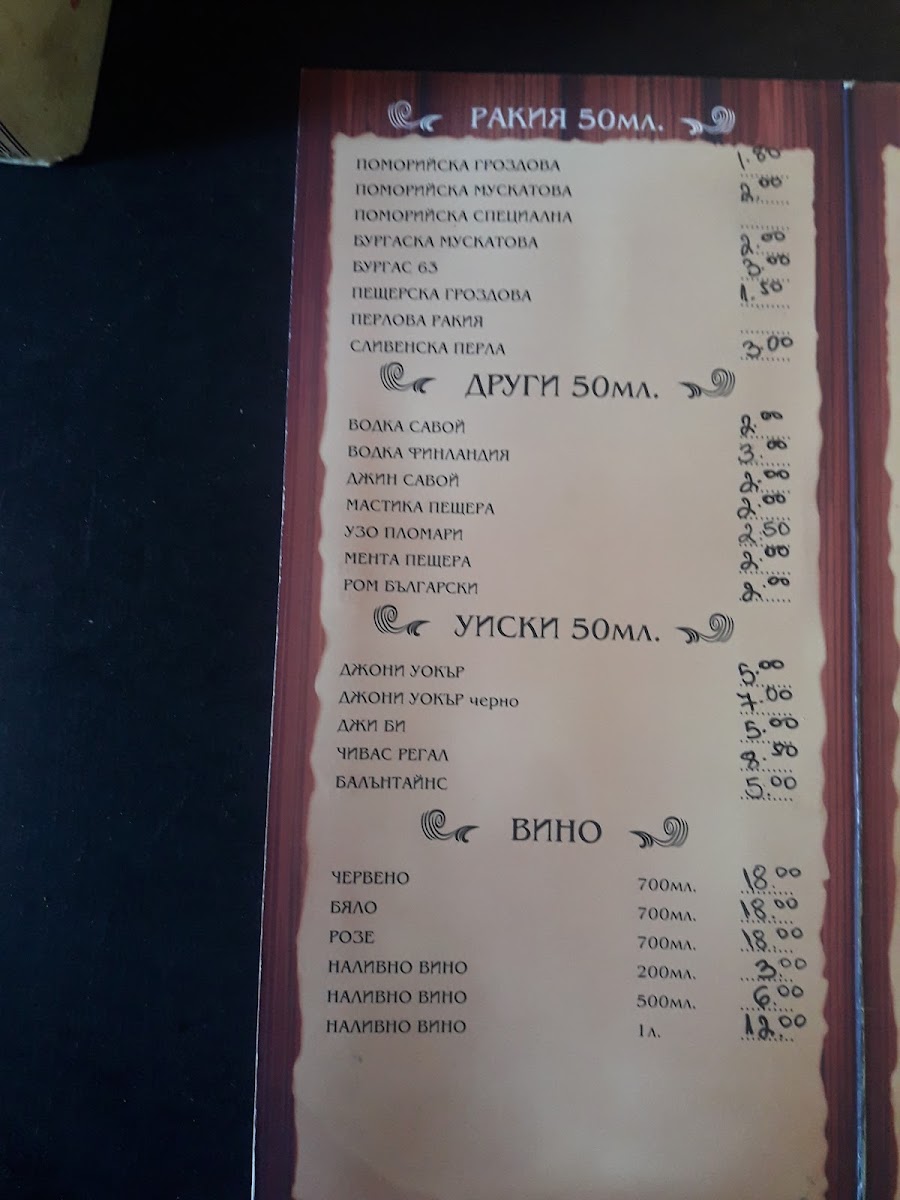 РАКИЯ 50МЛ.
ПОМОРИЙСКА ГРОЗДОВА 1.80
ПОМОРИЙСКА МУСКАТОВА 2.00
ПОМОРИЙСКА СПЕЦИАЛНА
БУРГАСКА МУСКАТОВА 2.00
БУРГАС 63 3.00
ПЕЩЕРСКА ГРОЗДОВА 1.50
ПЕРЛОВА РАКИЯ
СЛИВЕНСКА ПЕРЛА 3.00
ДРУГИ 50МЛ.
ВОДКА САВОЙ 2.00
ВОДКА ФИНЛАНДИЯ 3.00
ДЖИН САВОЙ 2.00
МАСТИКА ПЕЩЕРА 2.00
УЗО ПЛОМАРИ 2.50
МЕНТА ПЕЩЕРА 2.00
РОМ БЪЛГАРСКИ 2.00
УИСКИ 50МЛ.
ДЖОНИ УОКЪР 5.00
ДЖОНИ УОКЪР черно 7.00
ДЖИ БИ 5.00
ЧИВАС РЕГАЛ 8.50
БАЛЪНТАЙНС 5.00
ВИНО
ЧЕРВЕНО 700МЛ. 18.00
БЯЛО 700МЛ. 18.00
РОЗЕ 700МЛ. 18.00
НАЛИВНО ВИНО 200МЛ. 3.00
НАЛИВНО ВИНО 500МЛ. 6.00
НАЛИВНО ВИНО 1Л. 12.00